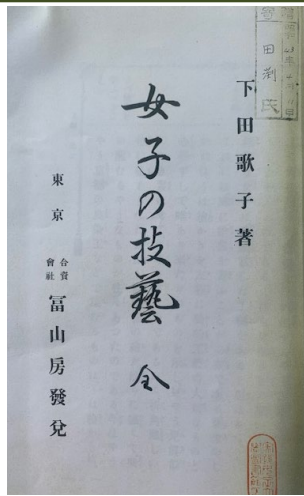 下田歌子著
女子の技藝 全
東京 合資會社 冨山房發兌